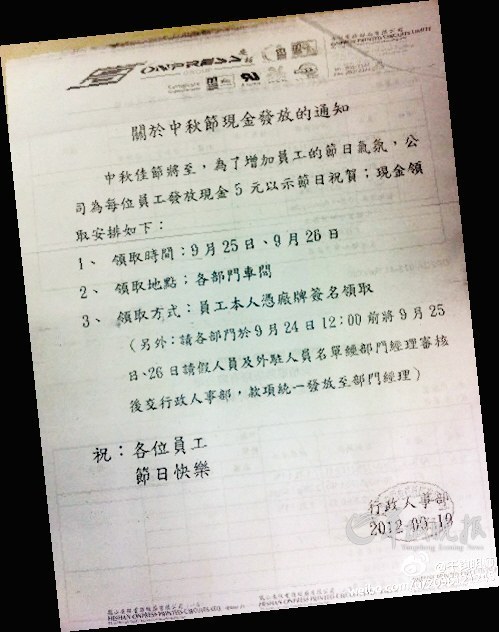 關於中秋節現金發放的通知
中秋佳節將至，為了增加員工的節日氣氛，公
司為每位員工發放現金5元以示節日祝賀；現金領
取安排如下：
1、領取時間：9月25日、9月26日
2、領取地點：各部門車間
3、領取方式：員工本人憑廠牌簽名領取
（另外：請各部門於9月24日12:00前將9月25
日、26日請假人員及外駐人員名單經部門經理審核
後交行政人事部，款項統一發放至部門經理）
祝：各位員工
節日快樂
行政人事部
2012-09-19
羊城晚報
Yangcheng Evening News
HESHAN ONPRESS PRINTED CIRCUITS LIMITED